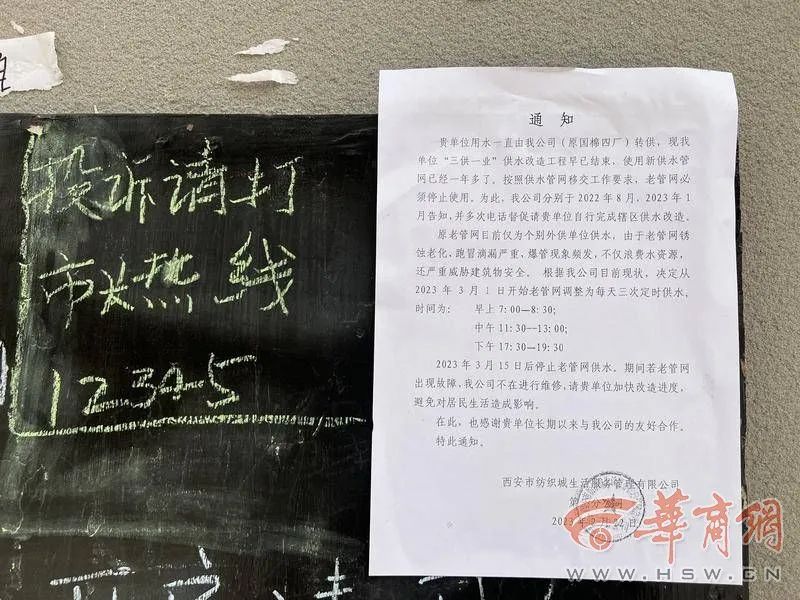 投诉请打
市长热线
12345
通 知
贵单位用水一直由我公司（原国棉四厂）转供，现我
单位“三供一业”供水改造工程早已结束，使用新供水管
网已经一年多了。按照供水管网移交工作要求，老管网必
须停止使用。为此，我公司分别于2022年8月，2023年1
月告知，并多次电话督促请贵单位自行完成辖区供水改造。
原老管网目前仅为个别外供单位供水，由于老管网锈
蚀老化，跑冒滴漏严重，爆管现象频发，不仅浪费水资源，
还严重威胁建筑物安全。根据我公司目前现状，决定从
2023年3月1日开始老管网调整为每天三次定时供水，
时间为： 早上7:00—8:30;
中午11:30—13:00;
下午17:30-19:30
2023年3月15日后停止老管网供水。期间若老管网
出现故障，我公司不在进行维修，请贵单位加快改造进度，
避免对居民生活造成影响。
在此，也感谢贵单位长期以来与我公司的友好合作。
特此通知。
西安市纺织城生活服务管理有限公司
2023年2月22日
華商網
WWW.HSW.CN